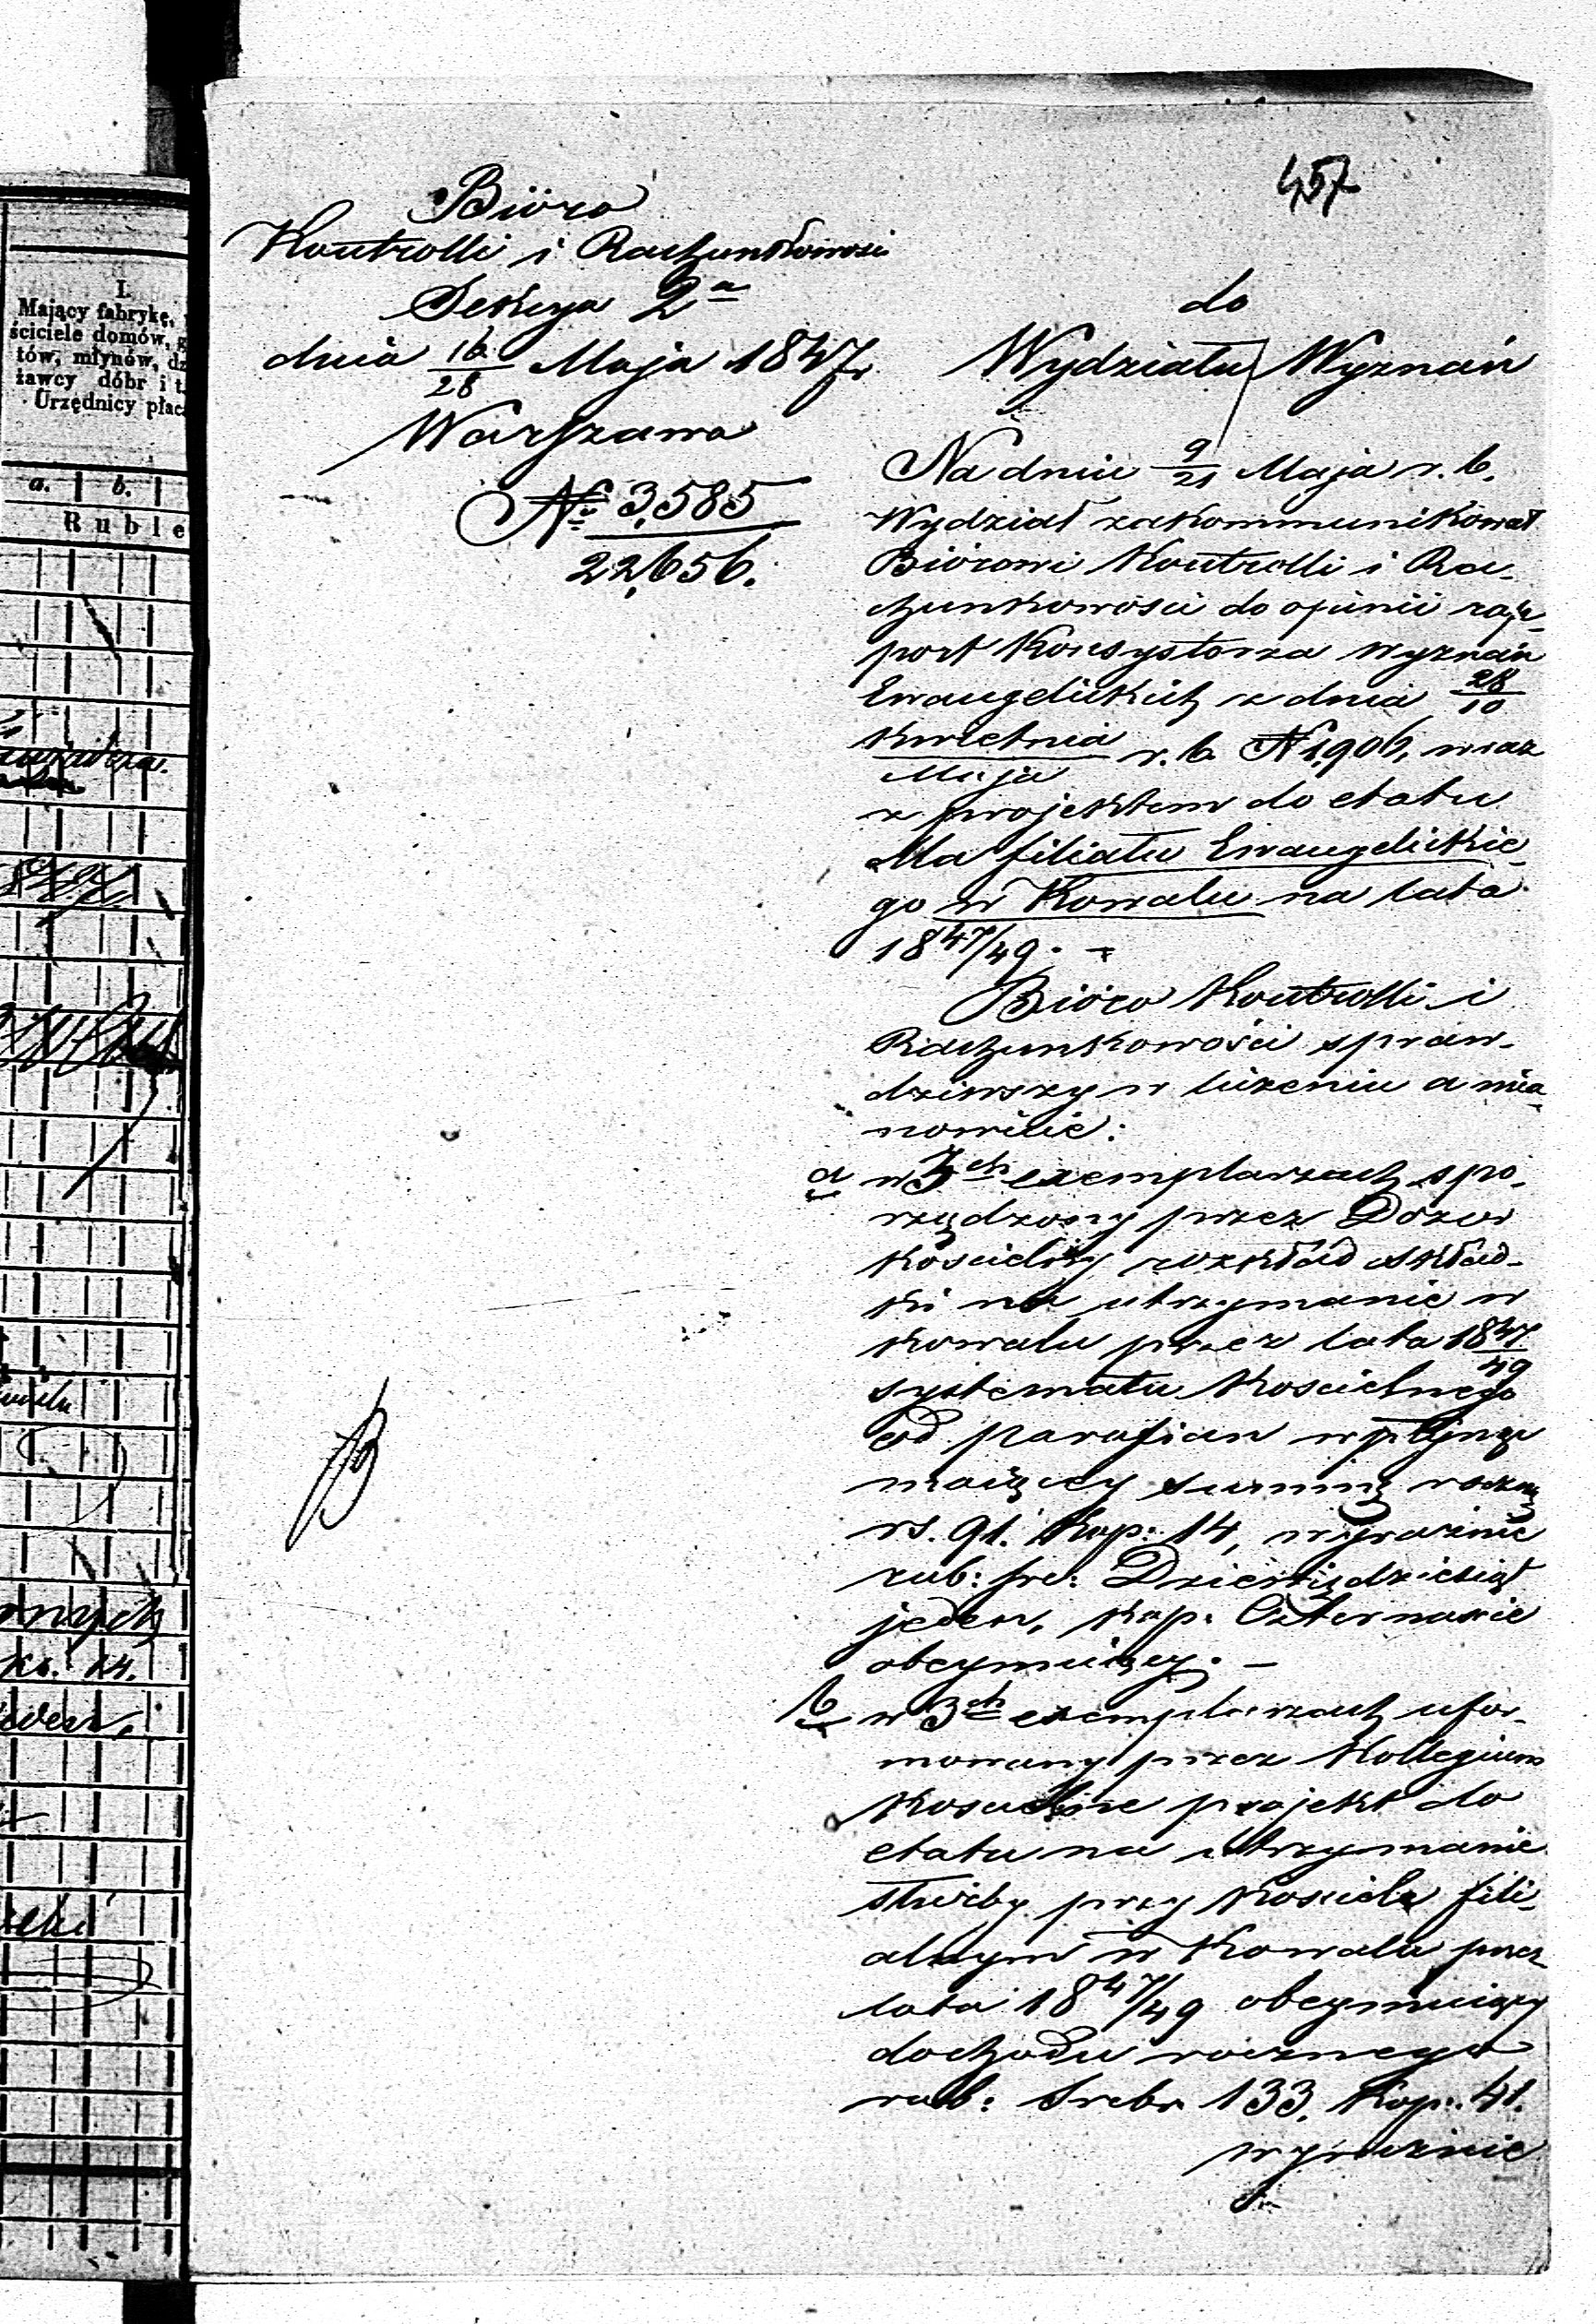 I.
Mający fabrykę,
ściciele domów, g
tów, młynów, dz
żawcy dóbr i t
Urzędnicy płac
a. b.
Ruble
rnych
ks. 14.
457
Bióro
Kontrolli i Rachunkowości
Sekcya 2a
dnia 16/28 Maja 1847 r
Warszawa
No 3,585
22,656.
do
Wydziału Wyznań
Na dniu 9/21 Maja r. b.
Wydział zakommunikował
Biórowi Kontrolli i Ra-
chunkowości do opinii rap-
port Konsystorza Wyznań
Ewangelickich z dnia 28/10
Kwietnia/Maja r. b. N 1,906, wraz
z projektem do etatu
dla filiału Ewangelickie-
go w Kowalu na lata
1847/49. -
Bióro Kontrolli i
Rachunkowości spraw-
dziwszy w liczeniu a mia-
nowicie:
a w 3ch exemplarzach spo-
rządzony przez Dozór
Kościelny rozkład skład-
ki na utrzymanie w
Kowalu przez lata 1847/49
systematu Kościelnego
od parafian wpłynąć
maiącey summę roczną
rs. 91. kop: 14, wyraźnie
rub: sre: Dziewięćdziesiąt
jeden, kop: Czternaście
obeymuiący. -
b w 3ch exemplarzach ufor-
mowany przez Kollegium
Kościelne projekt do
etatu na utrzymanie
służby przy Kościele fili-
alnym w Kowalu przez
lata 1847/49 obeymuiący
dochodu rocznego
rub: Srebr 133. Kop: 41.
wyraźnie